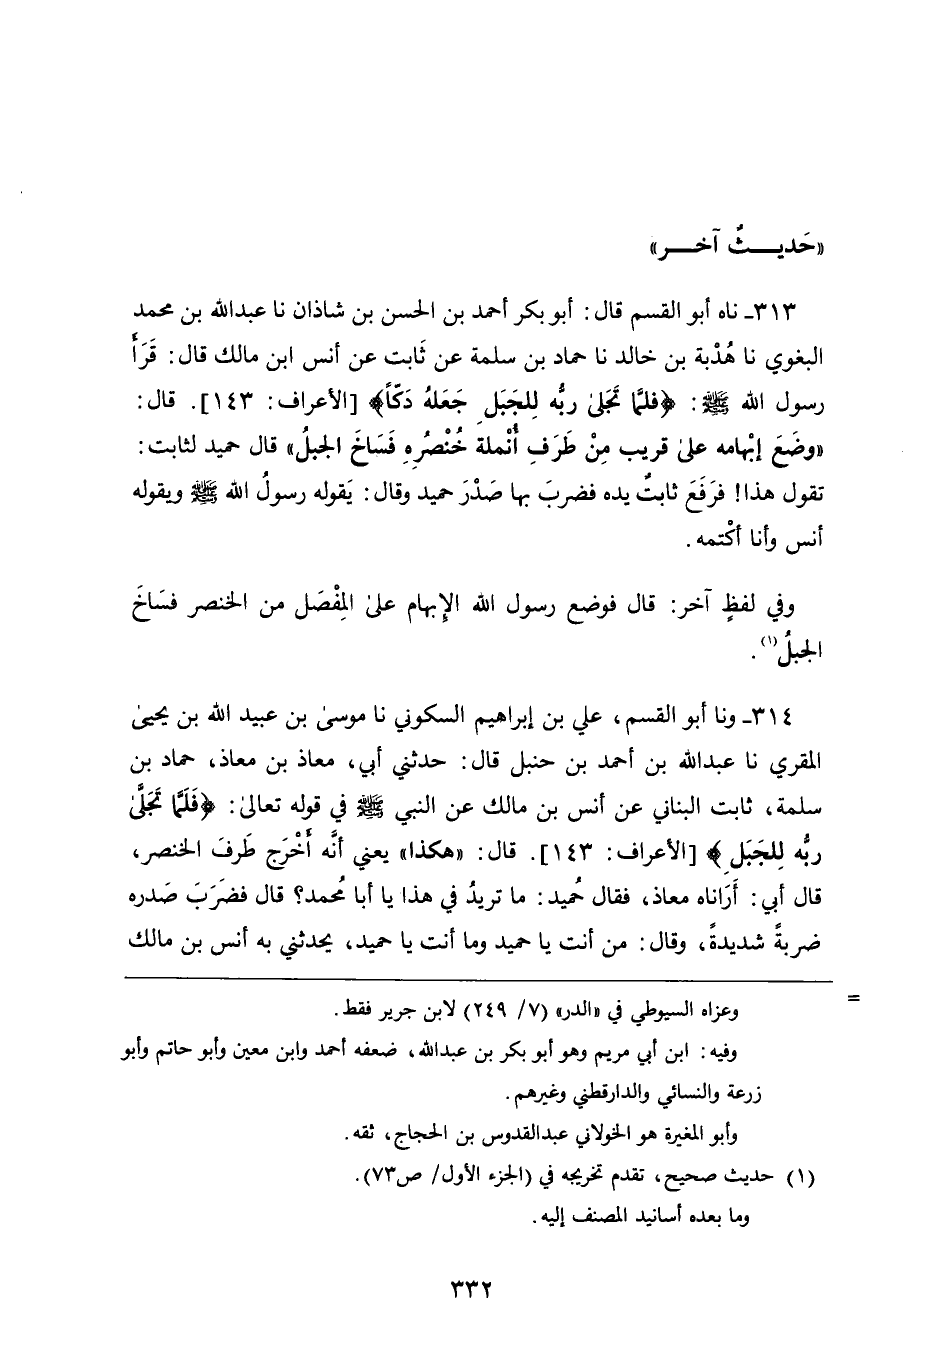 «حَديـــثٌ آخـــر»
٣١٣ـ ناه أبو القسم قال: أبو بكر أحمد بن الحسن بن شاذان نا عبدالله بن محمد
البغوي نا هُدْبة بن خالد نا حماد بن سلمة عن ثَابت عن أنس ابن مالك قال: قَرَأَ
رسول الله ﷺ: ﴿فلمَّا تَجَلىٰ ربُّه لِلجَبَلِ جَعَلهُ دَكّاً﴾ [الأعراف: ١٤٣]. قال:
«وضَعَ إبْهامه علىٰ قريب مِنْ طَرَفِ أُنْملة خُنْصرُهِ فَسَاخَ الجبلُ» قال حميد لثابت:
تقول هذا! فرَفَعَ ثابتٌ يده فضربَ بها صَدْرَ حميد وقال: يَقوله رسولُ الله ﷺ ويقوله
أنس وأنا أكْتمه.
وفي لفظٍ آخر: قال فوضع رسول الله الإبهام علىٰ المِفْصَل من الخنصر فسَاخَ
الجبلُ(١).
٣١٤ـ ونا أبو القسم، علي بن إبراهيم السكوني نا موسىٰ بن عبيد الله بن يحيىٰ
المقري نا عبدالله بن أحمد بن حنبل قال: حدثني أبي، معاذ بن معاذ، حماد بن
سلمة، ثابت البناني عن أنس بن مالك عن النبي ﷺ في قوله تعالىٰ: ﴿فَلَمَّا تَجَلَّىٰ
ربُّه لِلجَبَلِ﴾ [الأعراف: ١٤٣]. قال: «هكذا» يعني أنَّه أَخْرَج طَرفَ الخنصر،
قال أبي: أَرَاناه معاذ، فقال حُميد: ما تريدُ في هذا يا أبا مُحمد؟ قال فضَرَبَ صَدره
ضربةً شديدةً، وقال: من أنت يا حميد وما أنت يا حميد، يحدثني به أنس بن مالك
= وعزاه السيوطي في «الدر» (٧/ ٢٤٩) لابن جرير فقط.
وفيه: ابن أبي مريم وهو أبو بكر بن عبدالله، ضعفه أحمد وابن معين وأبو حاتم وأبو
زرعة والنسائي والدارقطني وغيرهم.
وأبو المغيرة هو الخولاني عبدالقدوس بن الحجاج، ثقه.
(١) حديث صحيح، تقدم تخريجه في (الجزء الأول/ ص٧٣).
وما بعده أسانيد المصنف إليه.
٣٣٢